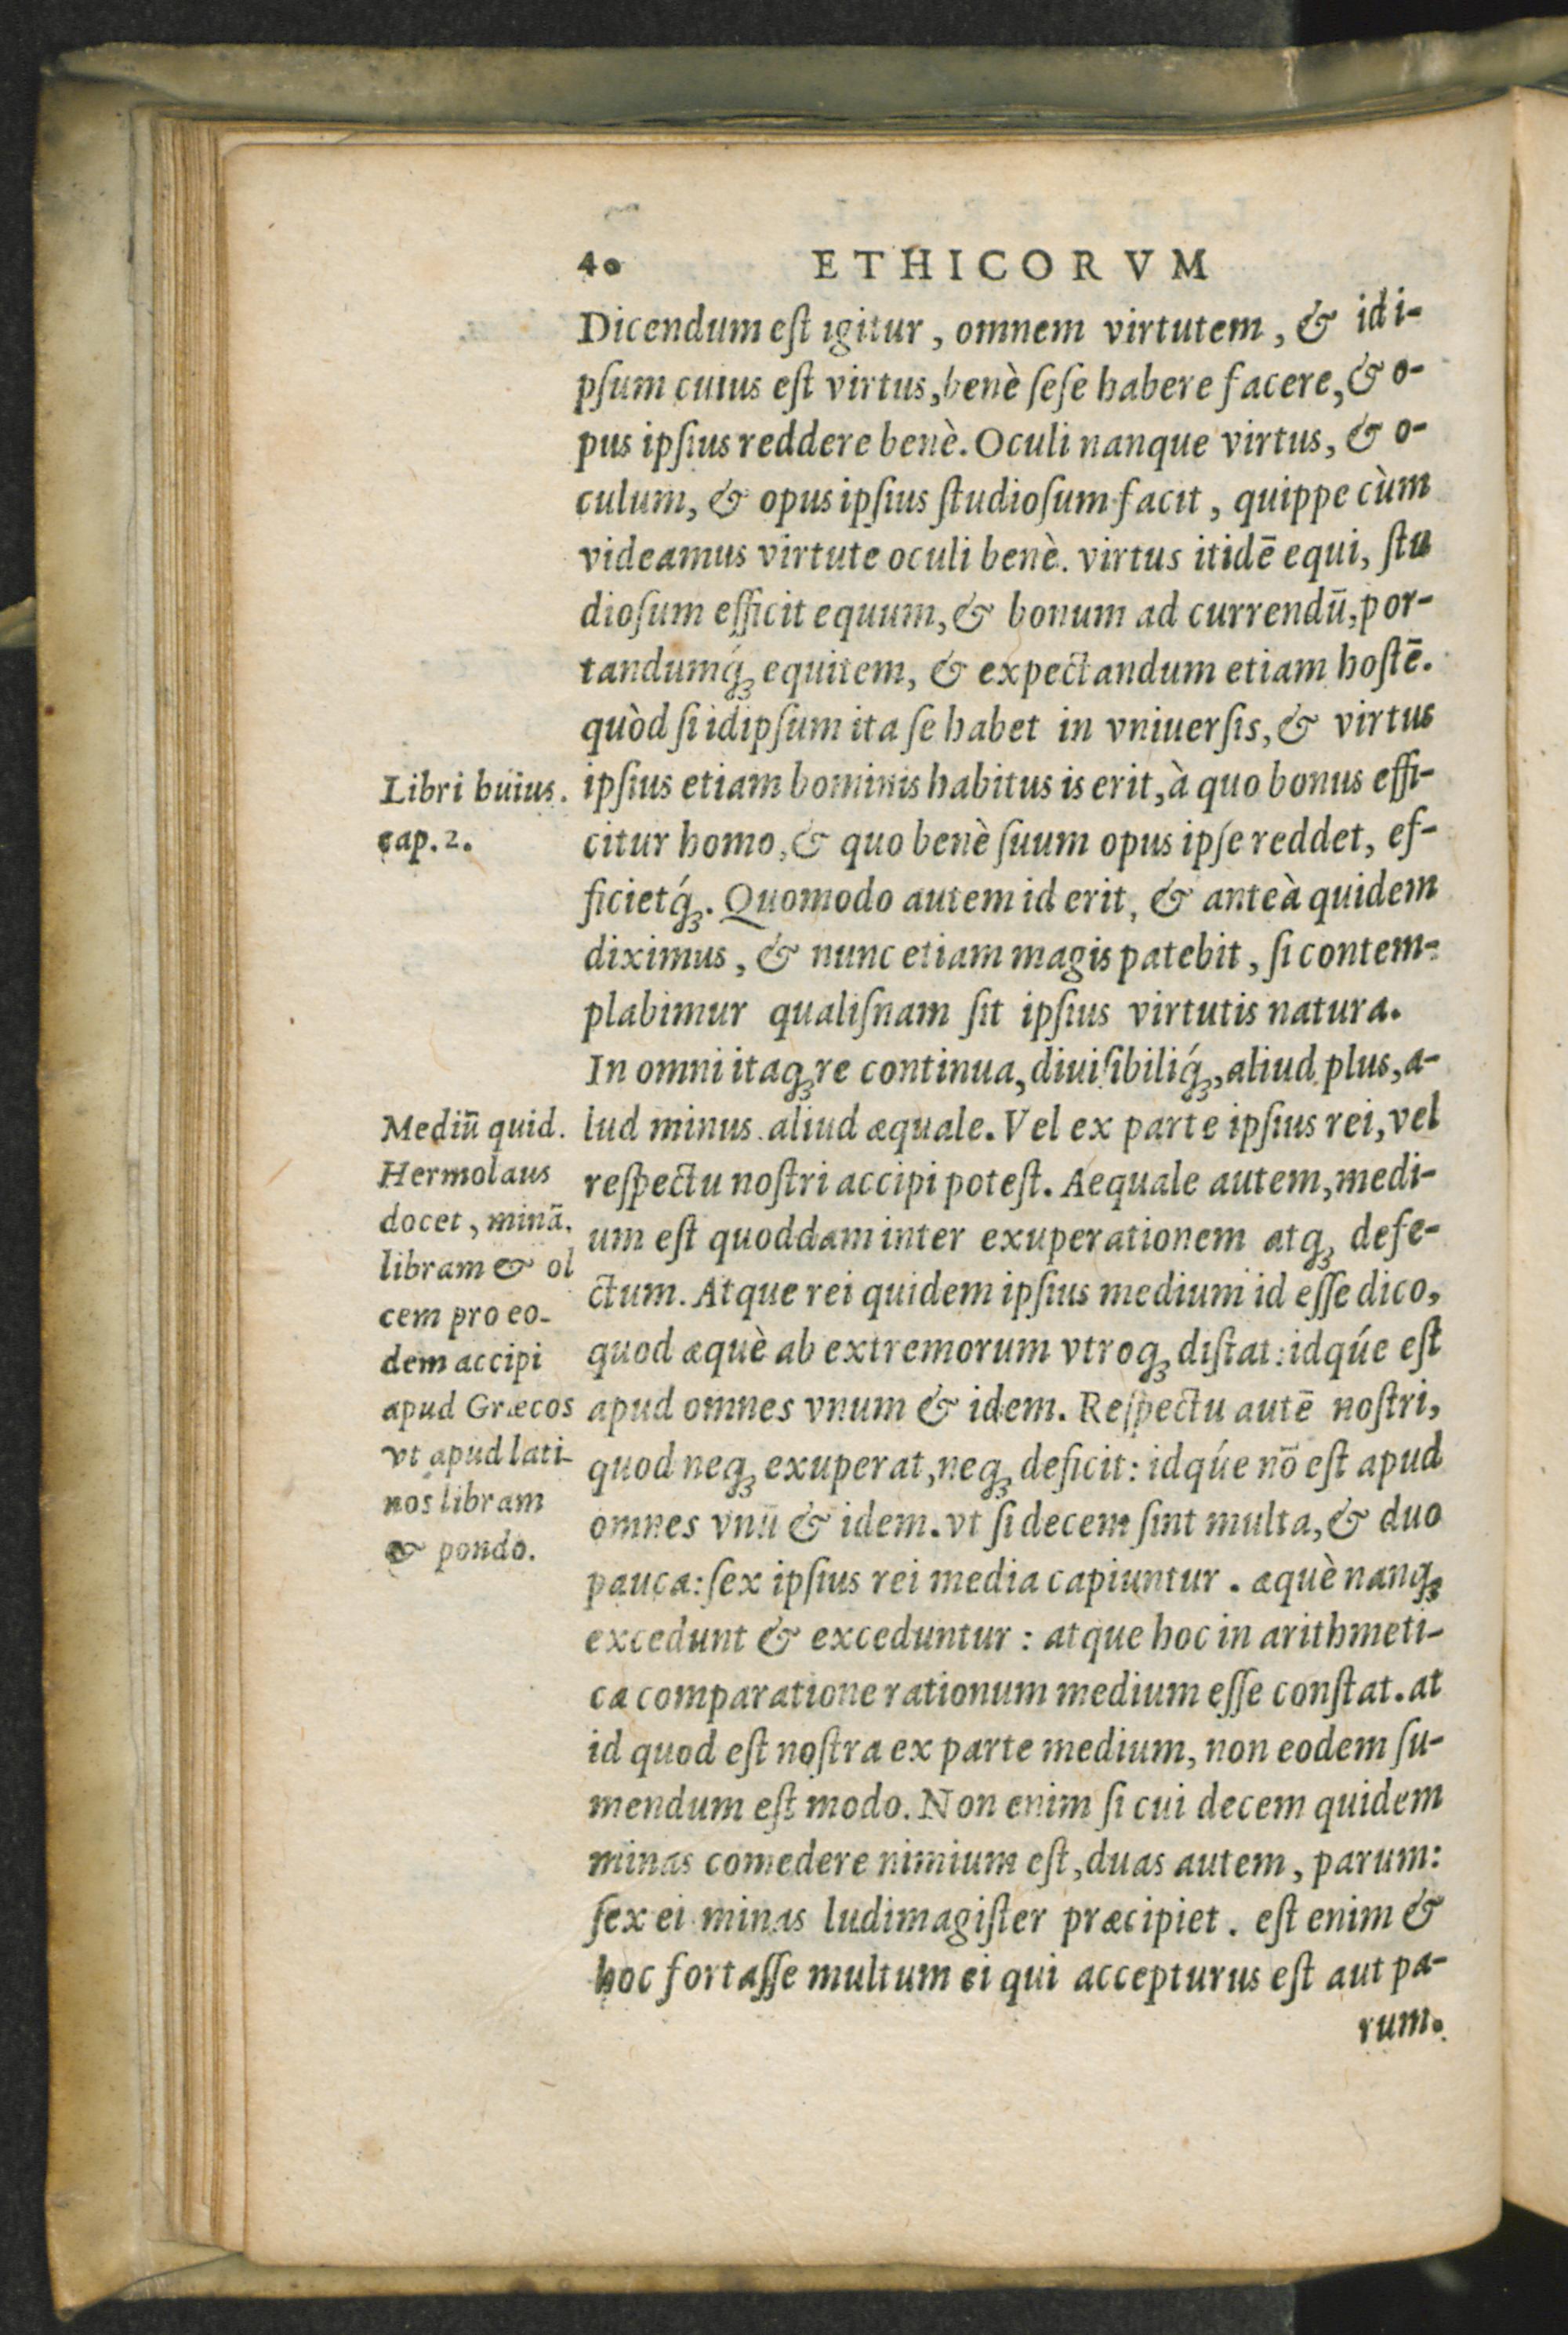 40 ETHICORVM
Dicendum est igitur, omnem virtutem, & idi-
psum cuius est virtus, benè sese habere facere, & o-
pus ipsius reddere benè. Oculi nanque virtus, & o-
culum, & opus ipsius studiosum facit, quippe cùm
videamus virtute oculi benè. virtus itidē equi, stu
diosum efficit equum, & bonum ad currendū, por-
tandumq́ꝫ equitem, & expectandum etiam hostē.
quòd si idipsum ita se habet in vniuersis, & virtus
ipsius etiam hominis habitus is erit, à quo bonus effi-
citur homo, & quo benè suum opus ipse reddet, ef-
ficietq́ꝫ. Quomodo autem id erit, & anteà quidem
diximus, & nunc etiam magis patebit, si contem-
plabimur qualisnam sit ipsius virtutis natura.
In omni itaqꝫ re continua, diuisibiliq́ꝫ, aliud plus, a-
lud minus. aliud æquale. Vel ex parte ipsius rei, vel
respectu nostri accipi potest. Aequale autem, medi-
um est quoddam inter exuperationem atqꝫ defe-
ctum. Atque rei quidem ipsius medium id esse dico,
quod æquè ab extremorum vtroqꝫ distat: idqúe est
apud omnes vnum & idem. Respectu autē nostri,
quod neqꝫ exuperat, neqꝫ deficit: idqúe nō est apud
omnes vnū & idem. vt si decem sint multa, & duo
pauca: sex ipsius rei media capiuntur. æquè nanqꝫ
excedunt & exceduntur: atque hoc in arithmeti-
ca comparatione rationum medium esse constat. at
id quod est nostra ex parte medium, non eodem su-
mendum est modo. Non enim si cui decem quidem
minas comedere nimium est, duas autem, parum:
sex ei minas ludimagister præcipiet. est enim &
hoc fortasse multum ei qui accepturus est aut pa-
rum.
Libri huius.
cap. 2.
Mediū quid.
Hermolaus
docet, minā,
libram & ol
cem pro eo-
dem accipi
apud Græcos
vt apud lati-
nos libram
& pondo.